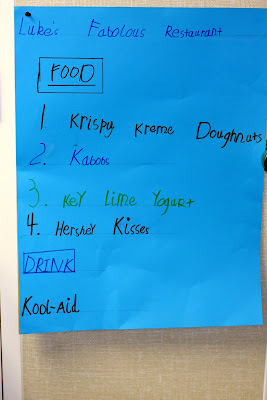 Luke's Fabolous Restaurant
FOOD
1 Krispy Kreme Doughnuts
2. Kabobs
3. Key Lime Yogurt
4. Hershey Kisses
DRINK
Kool-Aid